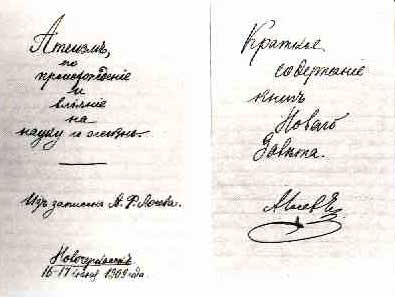 Атеизмъ,
по
происхожденіе
и
вліяніе
на
науку и жизнь.
Изъ записокъ А. Ф. Лосева.
Новочеркасскъ
16-17 1909 года.
Краткое
содержаніе
книгъ
Новаго
Завѣта.
АЛосевъ